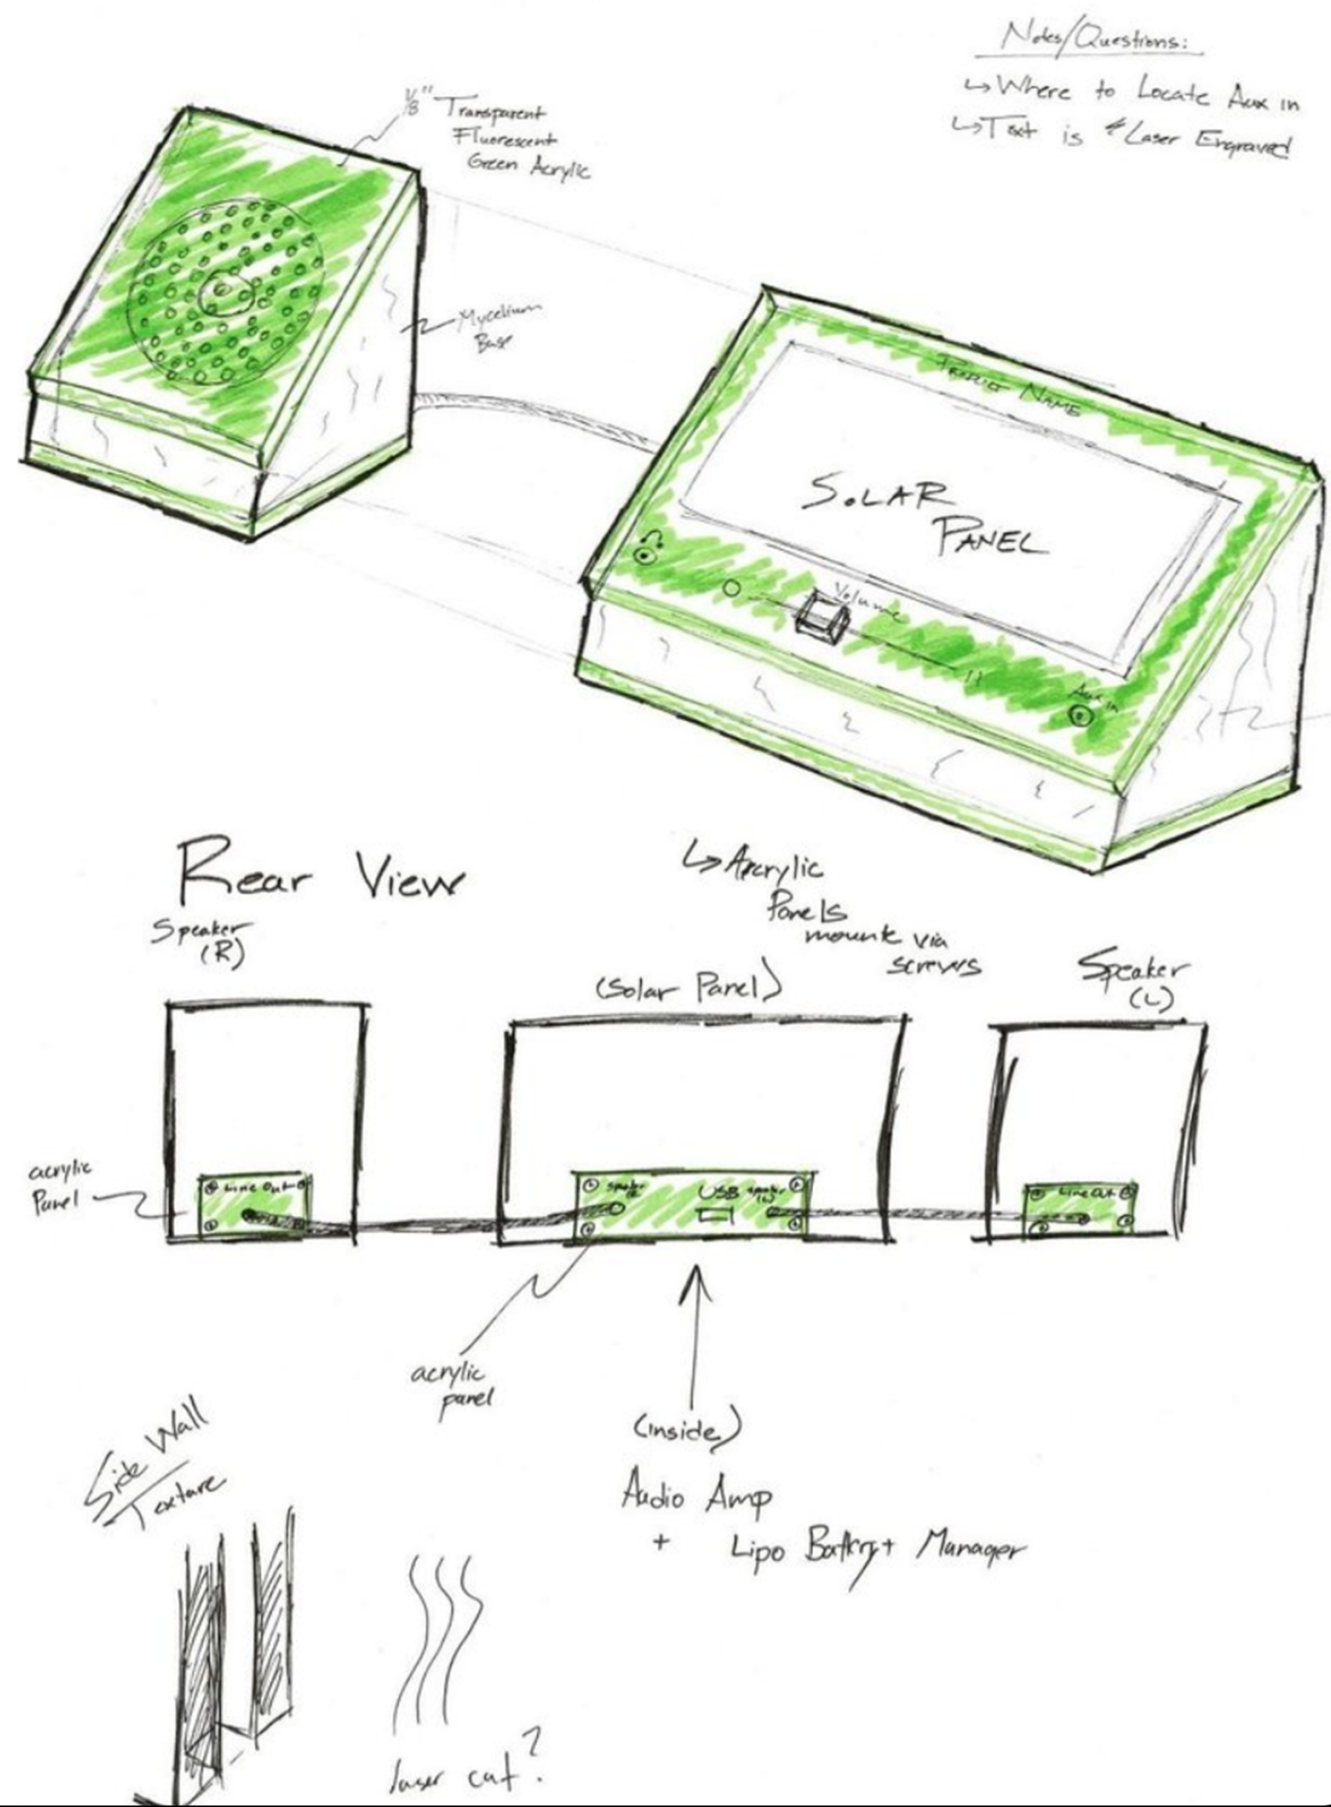 Notes/Questions:
↳ Where to Locate Aux in
↳ Text is Laser Engraved
1/8" Transparent
Fluorescent
Green Acrylic
Mycelium
Base
PRODUCT NAME
SOLAR
PANEL
Volume
Aux in
Rear View
↳ Acrylic
Panels
mount via
screws
Speaker
(R)
(Solar Panel)
Speaker
(L)
acrylic
Panel
Line Out
Speaker
(R)
USB
Speaker
(L)
Line Out
acrylic
panel
(inside)
Audio Amp
+ Lipo Battery + Manager
Side Wall
Texture
laser cut?